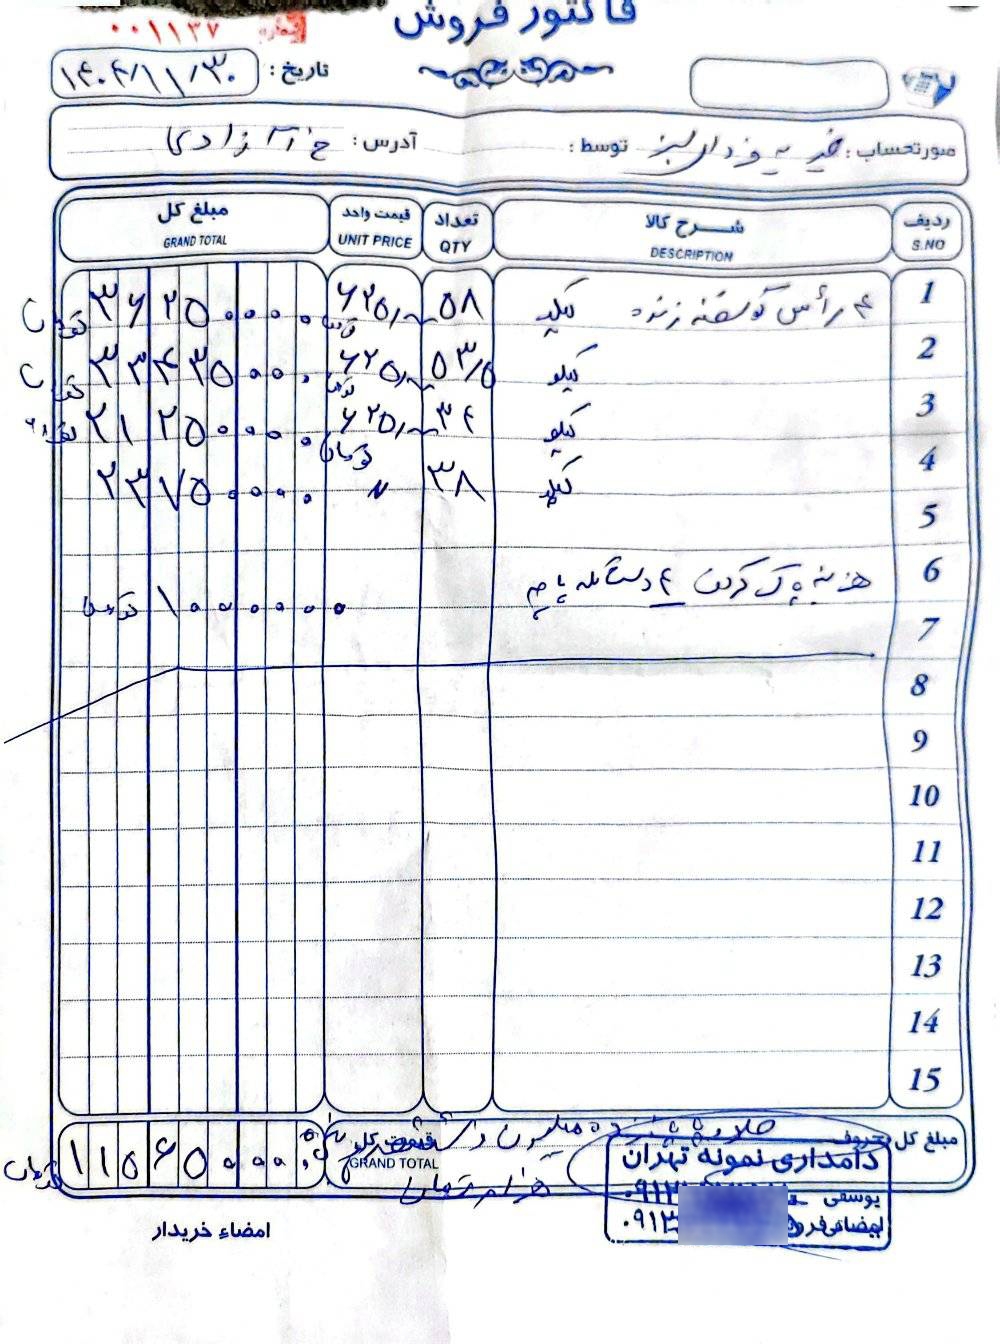 فاکتور فروش
شماره ۰۰۱۱۳۷
تاریخ : ۱۴۰۴/۱۱/۳۰
صورتحساب : خیریه فردای سبز توسط : آدرس : خ آزادی
ردیف S.NO شرح کالا DESCRIPTION تعداد QTY قیمت واحد UNIT PRICE مبلغ کل GRAND TOTAL
1 ۴ رأس گوسفند زنده کیلو ۵۸ ۶۲۵/۰۰۰ تومان ۳۶۲۵۰۰۰۰ تومان
2 کیلو ۵۳/۵ ۶۲۵/۰۰۰ تومان ۳۳۴۳۵۰۰۰ تومان
3 کیلو ۳۴ ۶۲۵/۰۰۰ تومان ۲۱۲۵۰۰۰۰ تومان
4 کیلو ۳۸ 〃 ۲۳۷۵۰۰۰۰
5
6 هزینه پاک کردن ۴ دستگاه پاچه ۱۰۰۰۰۰۰ تومان
7
8
9
10
11
12
13
14
15
مبلغ کل بحروف قیمت کل GRAND TOTAL ۱۱۵۶۵۰۰۰۰ تومان
پانزده میلیون و
هزار تومان
دامداری نمونه تهران
یوسفی ۰۹۱۲
۰۹۱۲
امضاء فروشنده
امضاء خریدار